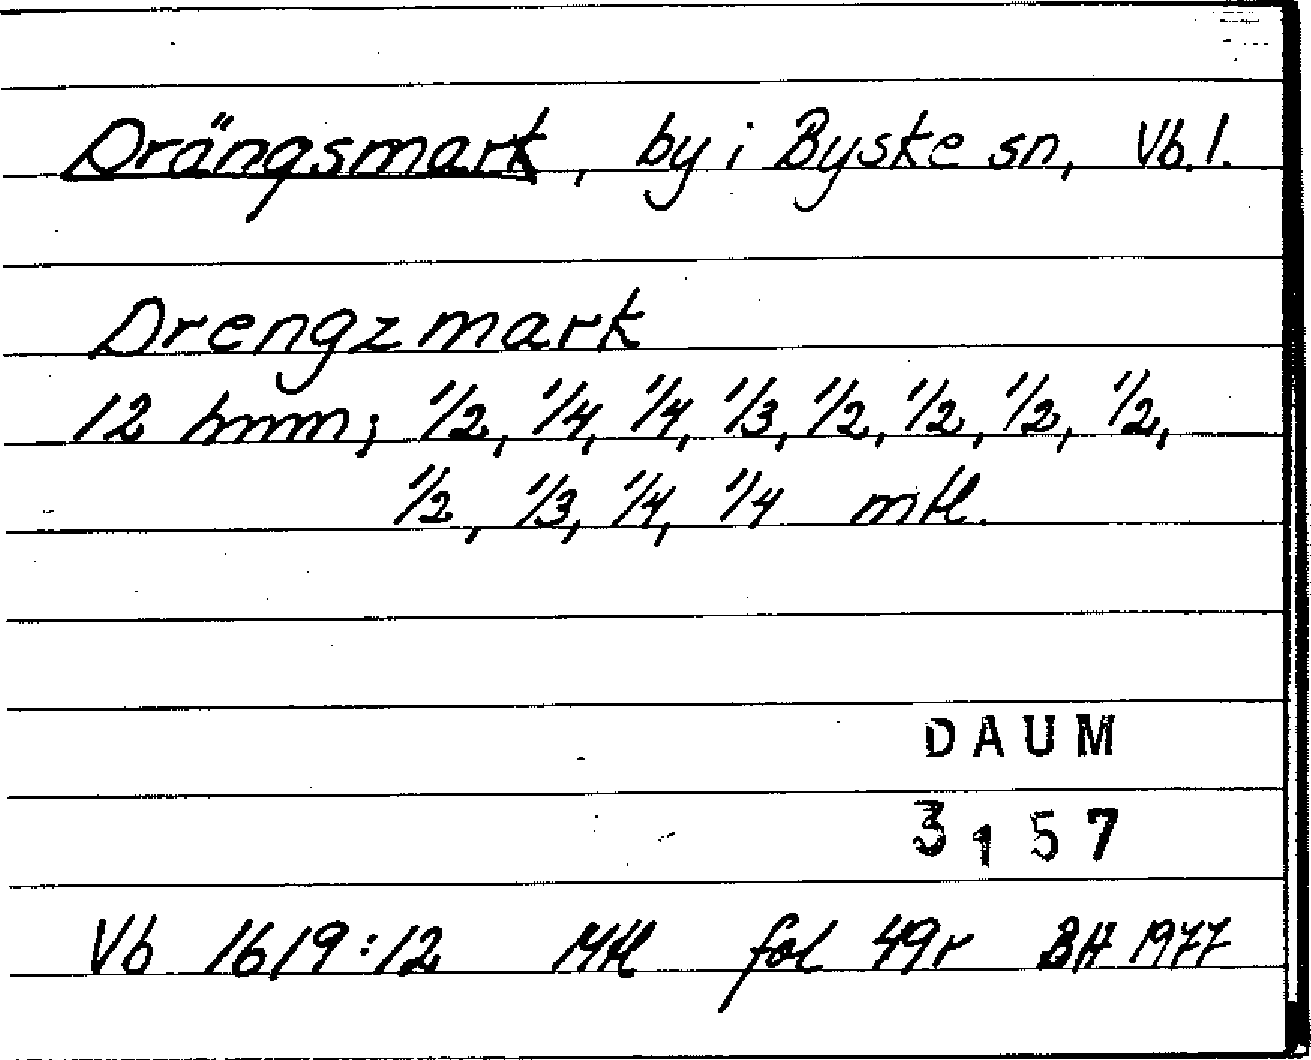 Drängsmark, by i Byske sn, Vb. l.
Drengzmark
12 hmm; 1/2, 1/4, 1/4, 1/3, 1/2, 1/2, 1/2, 1/2,
1/2, 1/3, 1/4, 1/4 mtl.
DAUM
3157
Vb 1619:12 Mtl fol 49r BH 1977